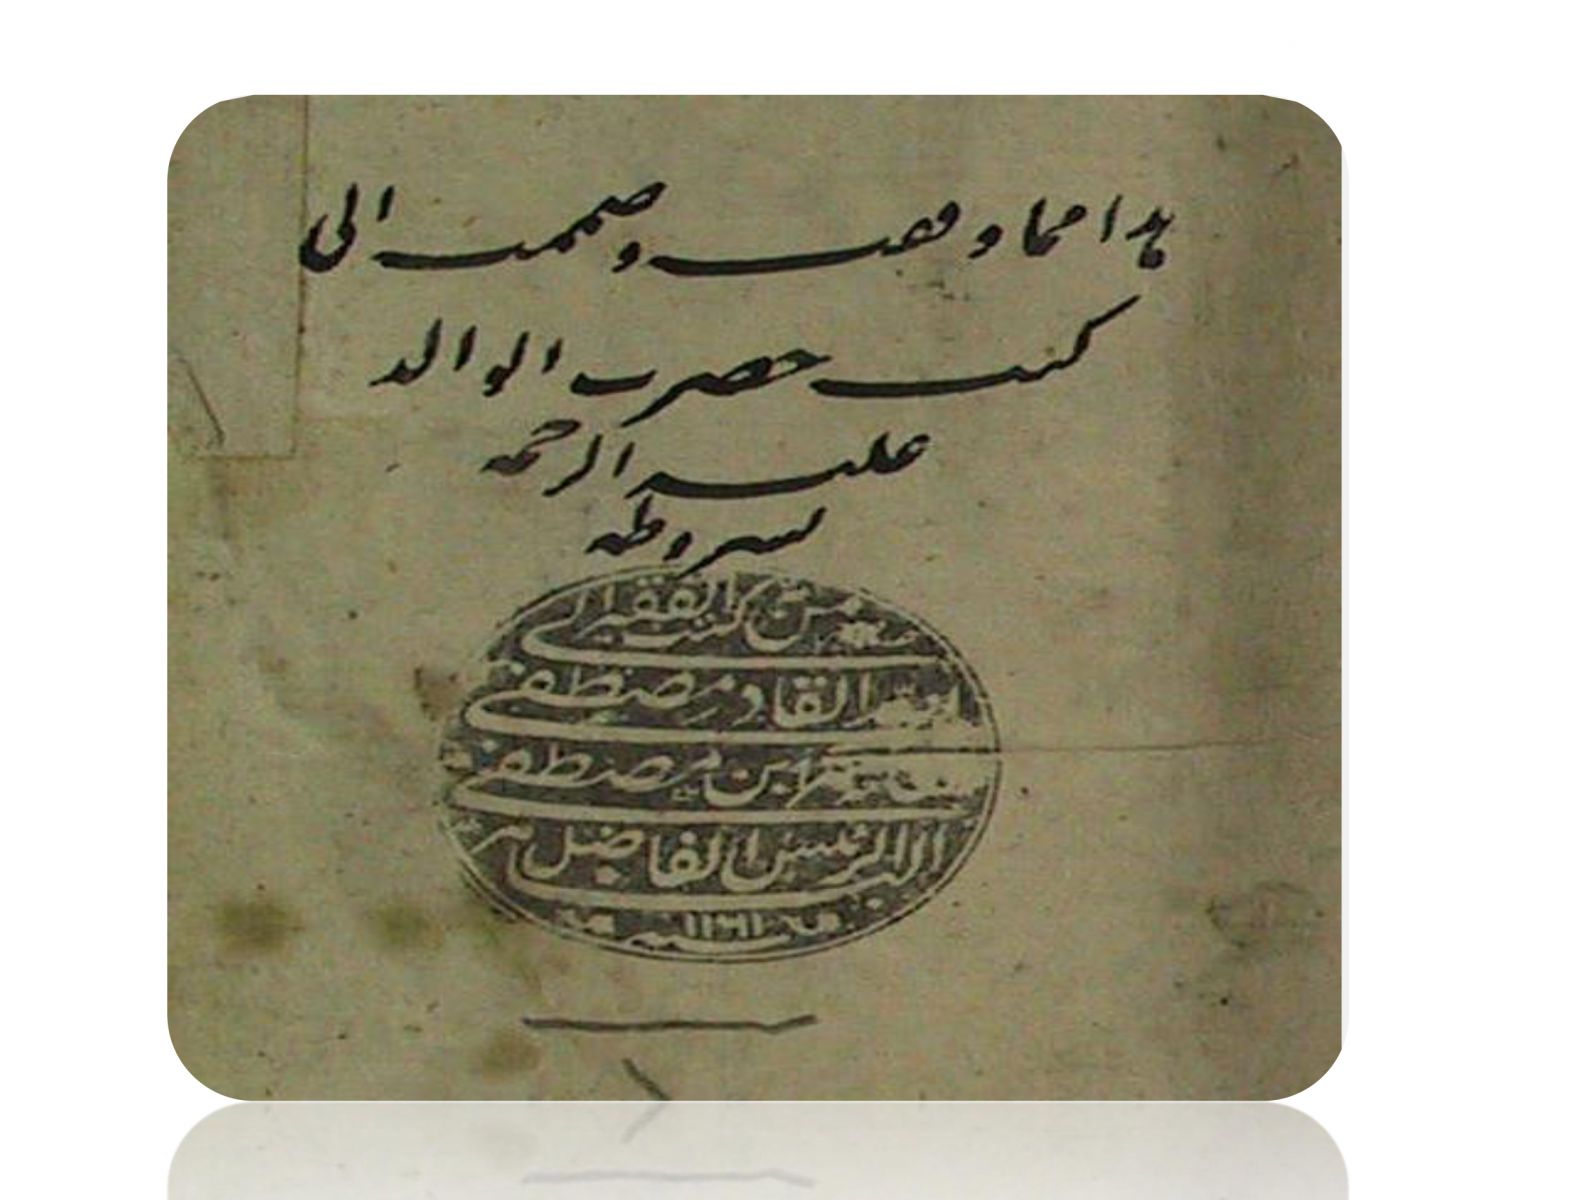 هذا مما وقفت وضممت الى
كتب حضرت الوالد
عليه الرحمه
بشروطه
من كتب الفقير الى
القادر مصطفى
ابن مصطفى
الفاضل
١١٦١